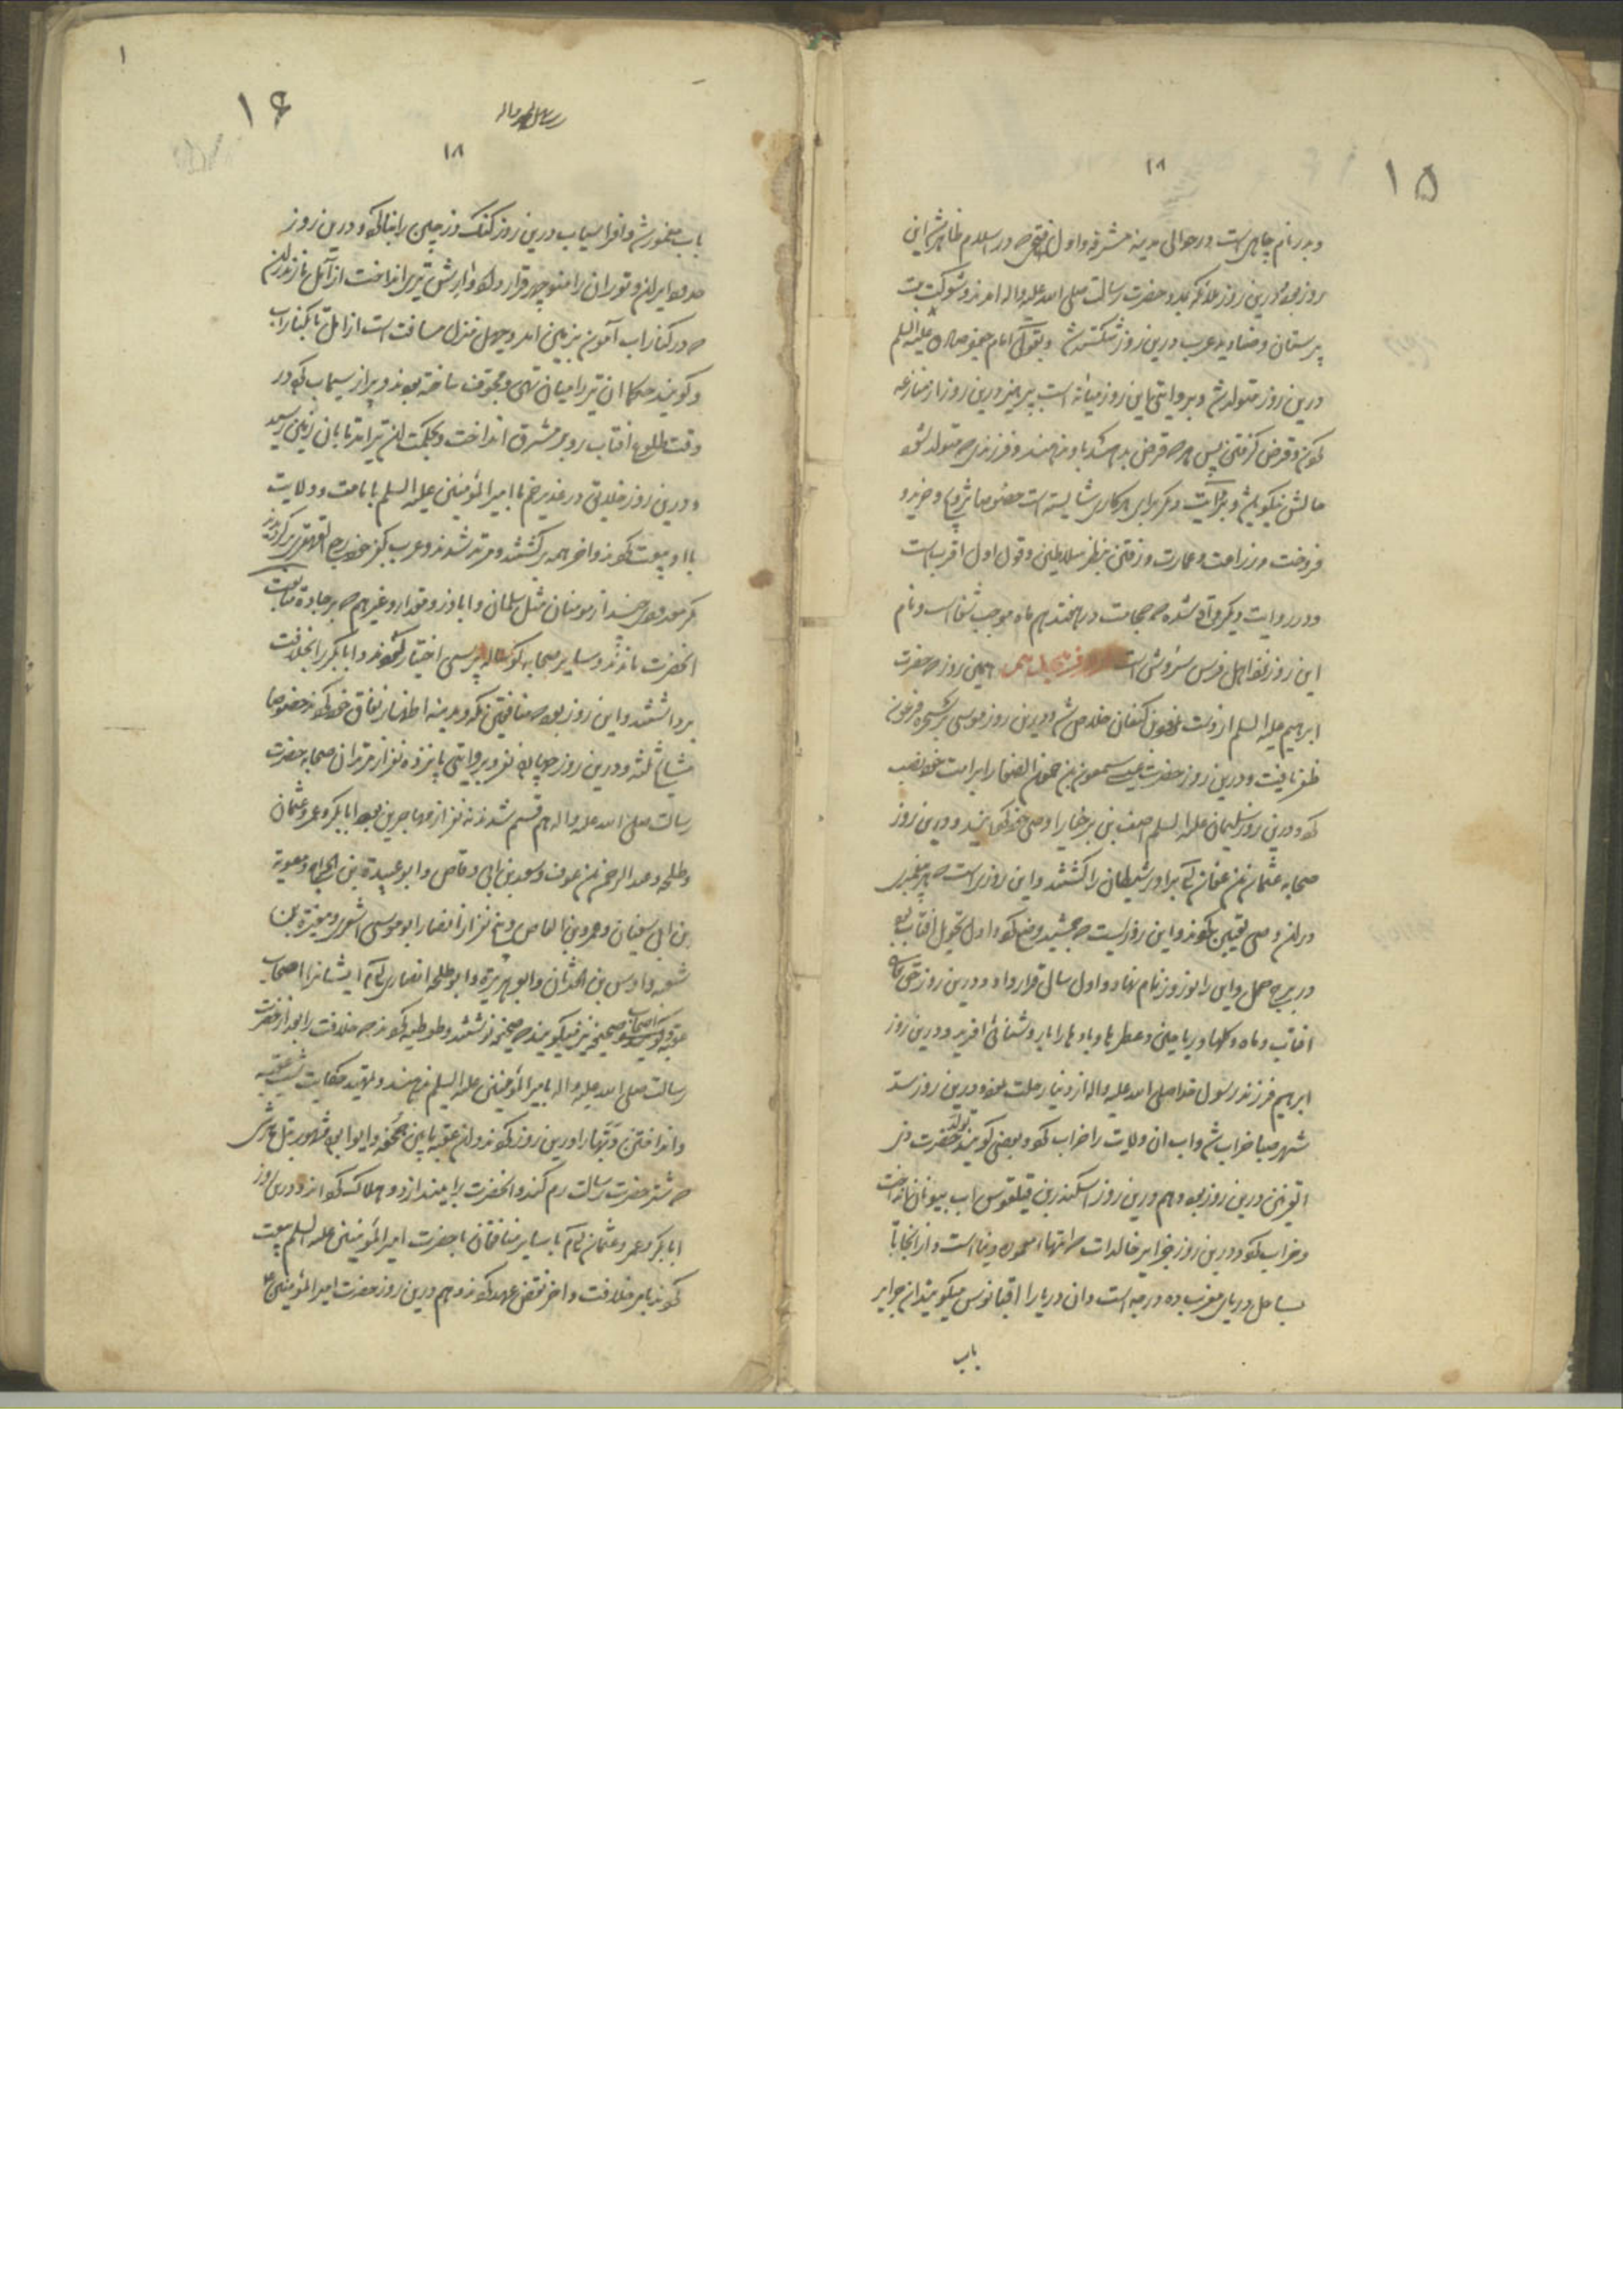 ۱۵
۱۸
و بدر نام چاهی است در حوالی مدینه مشرفه و اول فتحی که در اسلام ظاهر شد این
روز بود و درین روز ملائکه بمدد حضرت رسالت صلی الله علیه واله امدند و شوکت بت
پرستان و صنادید عرب درین روز شکسته شد و بقول امام جعفر صادق علیه السلم
درین روز متولد شد و بروایتی این روز میانه است بپرهیز درین روز از منازعه
کردن و قرض گرفتن پس هر که قرض بدهد باو ندهند و فرزندی که متولد شود
حالش نیکو باشد و بروایت دیگر برای هر کاری شایسته است خصوصا تزویج و خرید و
فروخت و زراعت و عمارت و رفتن بنظر سلاطین و قول اول اقرب است
و در روایت دیگر وارد شده که حجامت در هفدهم ماه موجب شفاست و نام
این روز نزد اهل فرس سروش است همین روز که حضرت
ابرهیم علیه السلم از دست نمرود کنعان خلاص شد و درین روز موسی بر سحره فرعون
ظفر یافت و درین روز حضرت عیسی شمعون بن حمون الصفا را بر امت خود نصب
کرد و درین روز سلیمان علیه السلم اصف بن برخیا را وصی خود کردانید و درین روز
صحابه عثمان بن عفان برادر شیطان را کشتند و این روزی است که هر پیغمبری
دران وصی تعیین کردند و این روزیست که جمشید وضع کرد و اول تحویل افتاب بود
در برج حمل و این را نوروز نام نهاد و اول سال قرار داد و درین روز حق تعالی
افتاب و ماه و کلها و ریاحین و عطرها و بادها را با روشنائی افرید و درین روز
ابرهیم فرزند رسول خدا صلی الله علیه واله از دنیا رحلت نمود و درین روز سد
شهر سبا خراب شد و اب ان ولایت را خراب کرد و بعضی گویند تولد حضرت ذی
القرنین درین روز بود و هم درین روز اسکندر بن فیلقوس اب بیونان انداخت
و خراب کرد و درین روز جزایر خالدات که انتهاء معموره دنیا است و از انجا تا
بساحل دریای مغرب ده درجه است و ان دریا را اقیانوس میگویند ان جزایر
باب
۱
۱۶
۱۸
باب مغمور شد و افراسیاب درین روز کنک دز چین را بنا کرد و درین روز
حدود ایران و توران را منوچهر قرار داد و ارش تیر انداخت از آمل مازندران
که در کنار اب آمون بزمین امد و چهل منزل مسافت است از آمل تا بکنار اب
و گویند حکما ان تیر را میان تهی و مجوف ساخته بودند و پر از سیماب که در
وقت طلوع افتاب رو بر مشرق انداخت و بحکمت ان تیر امد تا بان زمین رسید
و درین روز خلایق در غدیر خم با امیر المؤمنین علیه السلم بامامت و ولایت
با او بیعت کردند و اخر همه برگشتند و مرتد شدند و عرب بکفر خود رجع القهقری کردند
مگر معدودی چند از مومنان مثل سلمان و اباذر و مقداد و غیرهم که بر جاده متابعت
انحضرت ماندند و سایر صحابه کوساله پرستی اختیار نمودند و ابابکر را بخلافت
برداشتند و این روز بود که منافقین مکه و مدینه اظهار نفاق خود کردند خصوصا
مشایخ ثلثه و درین روز چهارده نفر و بروایتی پانزده نفر از مرتدان صحابه حضرت
رسالت صلی الله علیه واله هم قسم شدند نه نفر از مهاجرین بود ابابکر و عمر و عثمان
و طلحه و عبد الرحمن بن عوف و سعد بن ابی وقاص و ابو عبیده بن الجراح و معویه
بن ابی سفیان و عمرو بن العاص و پنج نفر از انصار ابو موسی اشعری و مغیرة بن
شعبه و اوس بن الحدثان و ابو هریره و ابو طلحه انصاری ایشانرا اصحاب
عقبه گویند و اصحاب صحیفه نیز میگویند که صحیفه نوشتند و طوطیه کردند که خلافت را بعد از حضرت
رسالت صلی الله علیه واله بامیر المؤمنین علیه السلم ندهند و تمهید حکایت شب عقبه
و انداختن دبها را درین روز کردند و از عقبه پایین
که شتر حضرت رسالت رم کند و انحضرت را بیندازد و هلاک کرداند و درین روز
ابابکر و عمر و عثمان با سایر منافقان با حضرت امیر المؤمنین علیه السلم بیعت
کردند بامر خلافت و اخر نقض عهد کردند و هم درین روز حضرت امیر المؤمنین ع